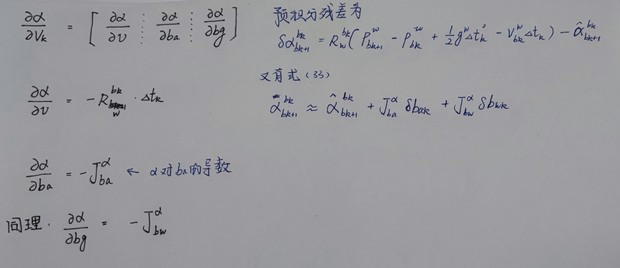 ∂α/∂V_k = [ ∂α/∂v ⋮ ∂α/∂ba ⋮ ∂α/∂bg ]
预积分残差为
δα^{bk}_{bk+1} = R^{bk}_w ( P^w_{bk+1} - P^w_{bk} + 1/2 g^w Δt_k^2 - V^w_{bk} Δt_k ) - α̂^{bk}_{bk+1}
∂α/∂v = - R^{bk}_w · Δt_k
又有式 (33)
α̂^{bk}_{bk+1} ≈ α̂^{bk}_{bk+1} + J^α_{ba} δbak + J^α_{bw} δbwk
∂α/∂ba = - J^α_{ba} ← α对ba的导数
同理. ∂α/∂bg = - J^α_{bw}